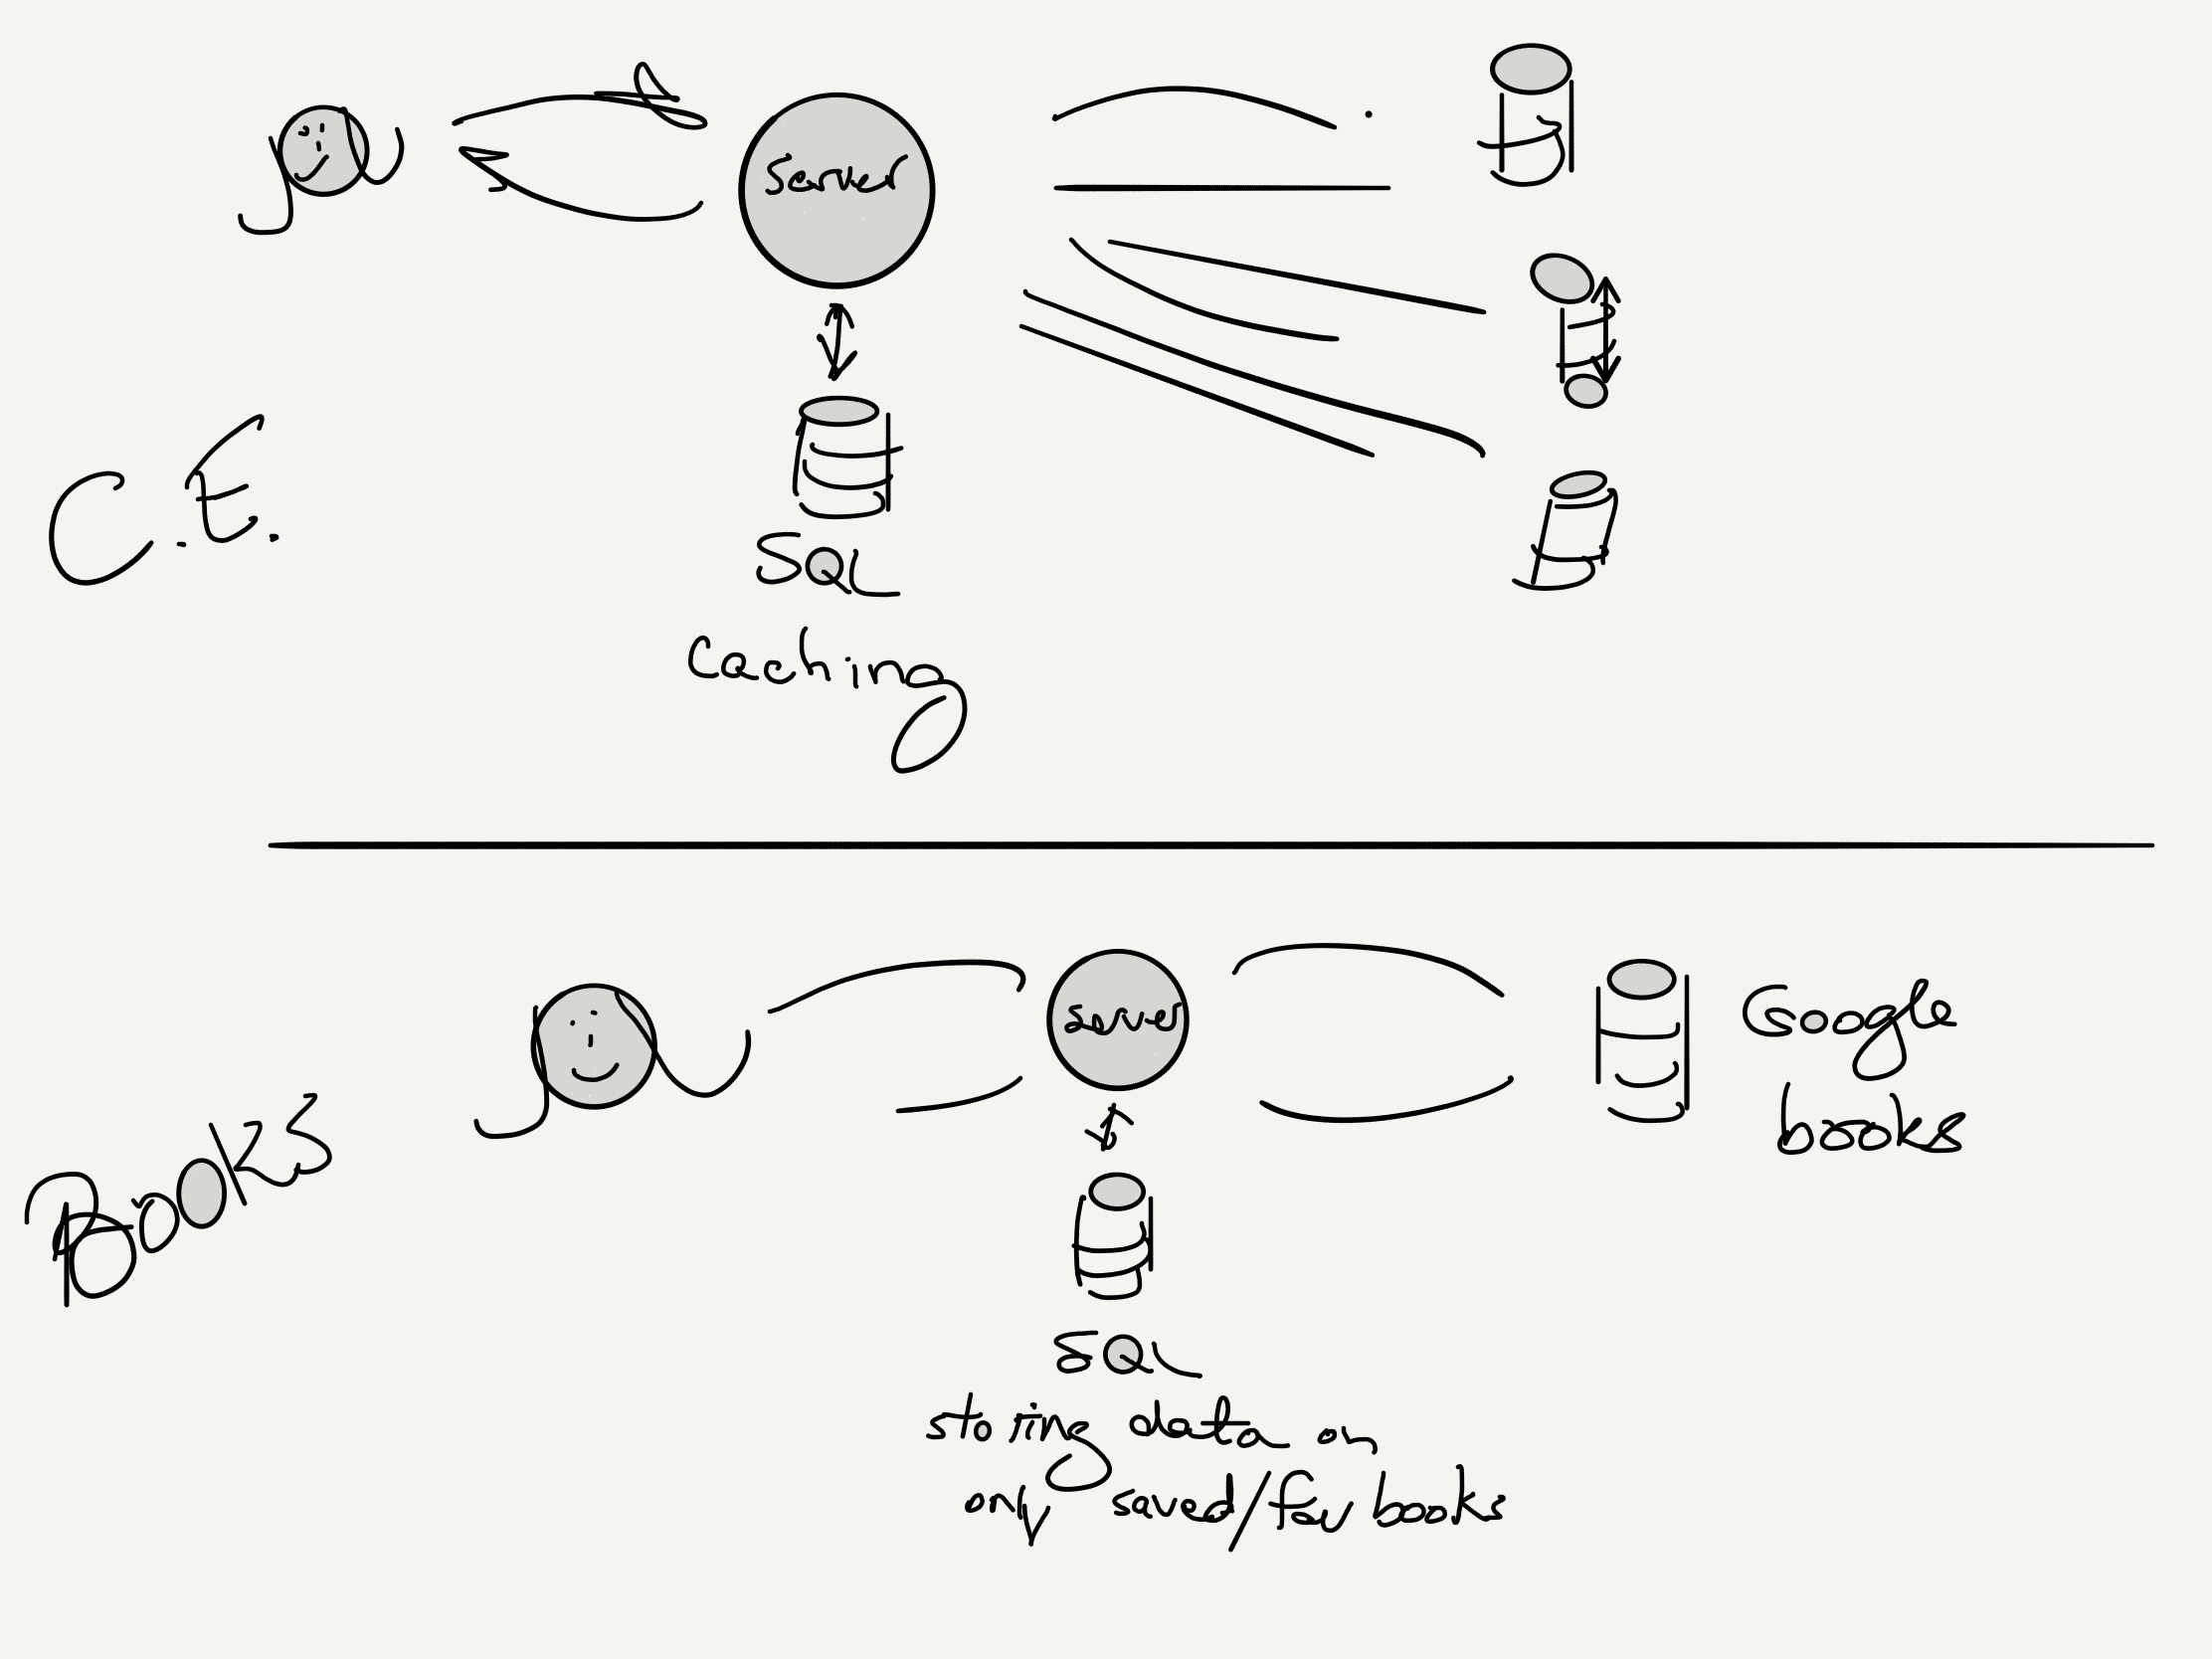 Server
C.E.
SQL
Caching
Server
Google
books
Books
SQL
storing data on
only saved/fav books